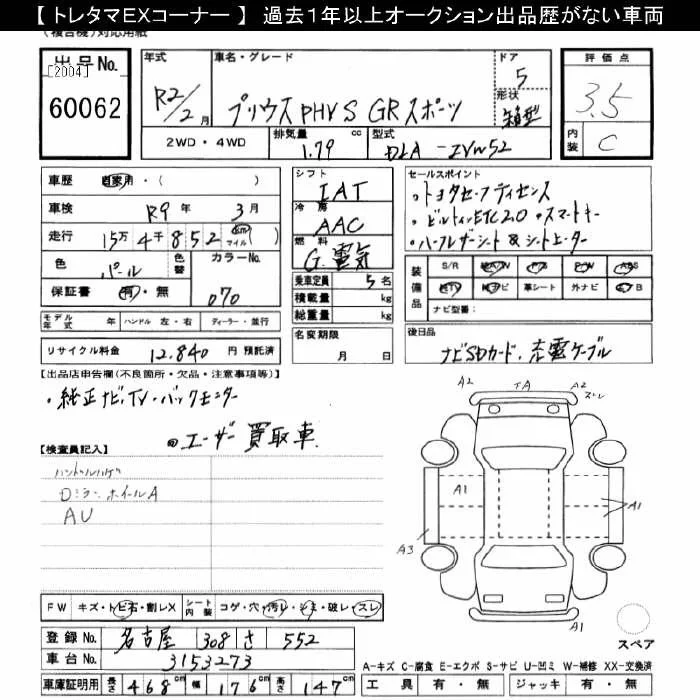 【トレタマEXコーナー】 過去1年以上オークション出品歴がない車両
出品No. [2004] 60062
年式 R2/2月
車名・グレード プリウスPHV S GRスポーツ
ドア 5
形状 箱型
2WD・4WD
排気量 1.79 cc
型式 DLA-ZVW52
評価点 3.5
内装 C
車歴 自家用・( )
車検 R9年 3月
走行 15万4千852 (km)マイル
色 パール
色替
カラーNo. 070
保証書 有・無
モデル年式 年 ハンドル 左・右 ディーラー・並行
リサイクル料金 12,840 円 預託済
シフト IAT
冷房 AAC
燃料 G.電気
乗車定員 5名
積載量 kg
総重量 kg
名変期限 月 日
セールスポイント
・トヨタセーフティセンス
・ビルトインETC2.0 ・スマートキー
・ハーフレザーシート&シートヒーター
装備品 S/R AW P/S P/W ABS
TV ナビ 革シート 外ナビ エアB
ナビ型番:
後日品
ナビSDカード、充電ケーブル
【出品店申告欄(不良箇所・欠品・注意事項等)】
・純正ナビ、TV・バックモニター
・ユーザー買取車
【検査員記入】
ハンドルハゲ
Dミラー ホイールA
AU
A2 TA A2
ズレ
A1 A1
A3
A1
スペア
FW キズ・トビ石・割レX シート内装 コゲ・穴・汚レ・シミ・破レ・スレ
登録No. 名古屋 308 さ 552
車台No. 3153273
車庫証明用 長さ 468cm 幅 176cm 高さ 147cm
A-キズ C-腐食 E-エクボ S-サビ U-凹ミ W-補修 XX-交換済
工具 有・無 ジャッキ 有・無